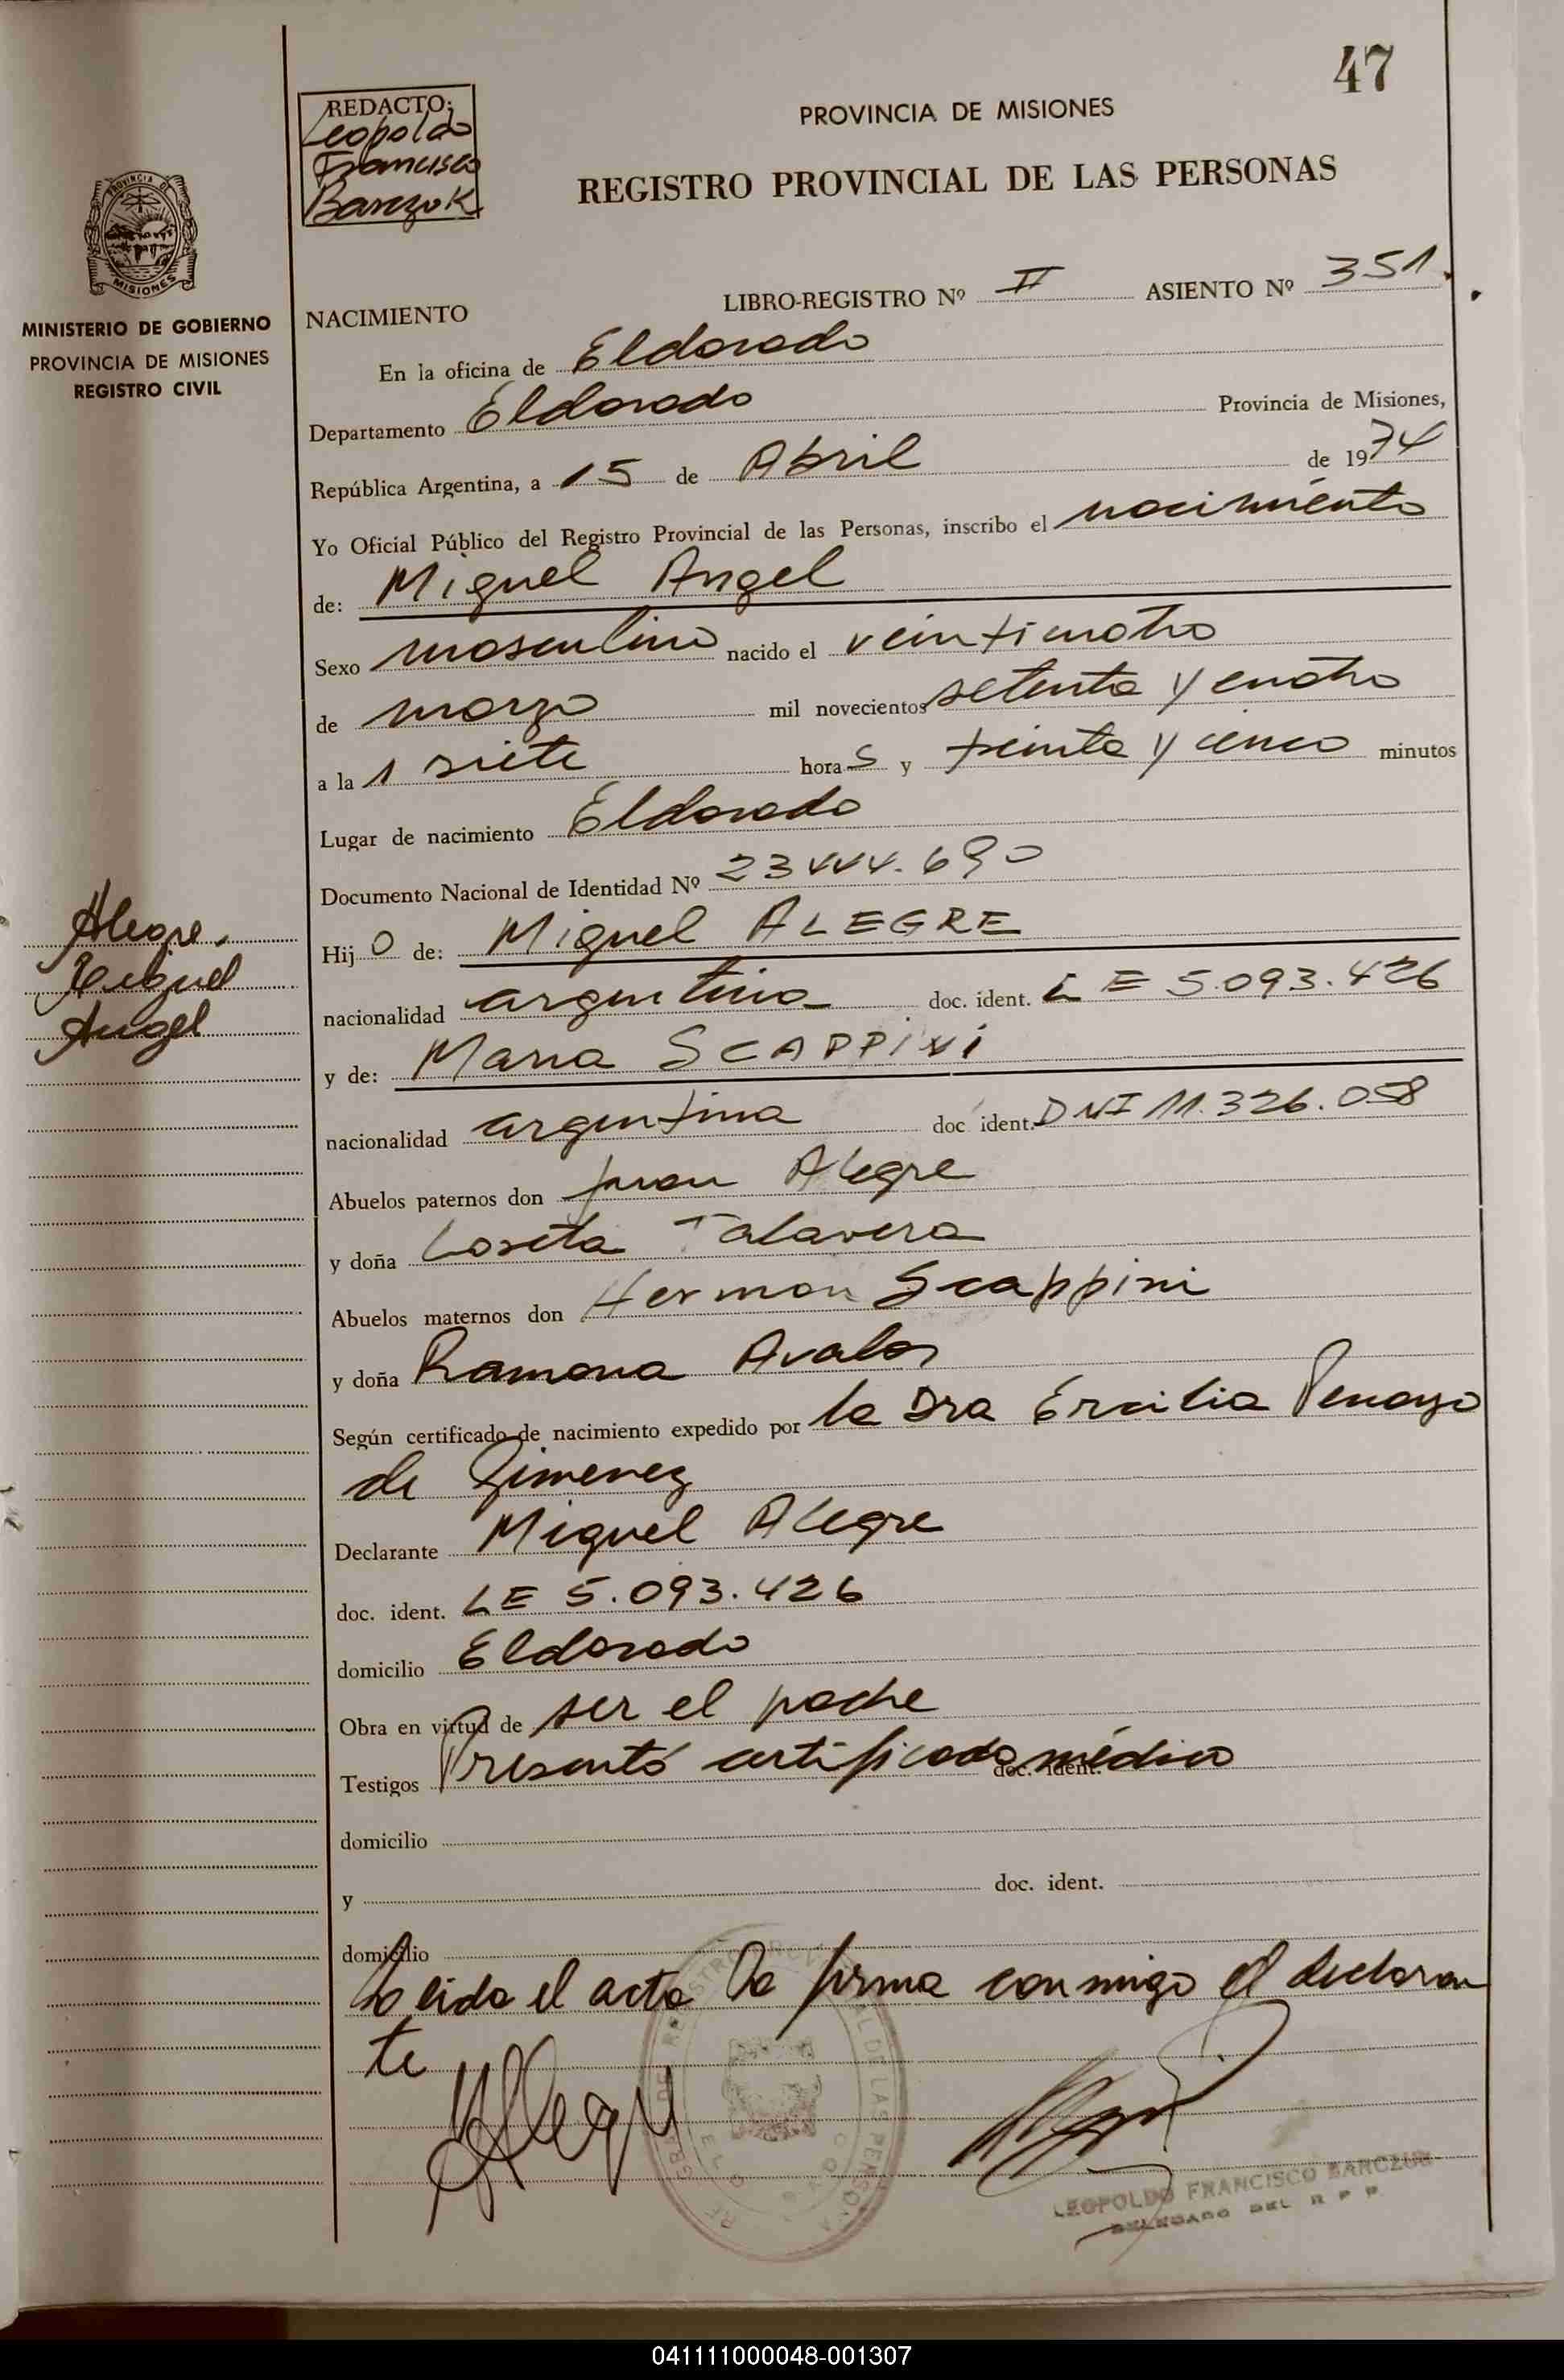 47
REDACTO:
Leopoldo
Francisco
Barczuk
PROVINCIA DE MISIONES
REGISTRO PROVINCIAL DE LAS PERSONAS
MISIONES
MINISTERIO DE GOBIERNO
PROVINCIA DE MISIONES
REGISTRO CIVIL
NACIMIENTO LIBRO-REGISTRO Nº II ASIENTO Nº 351.
En la oficina de Eldorado
Departamento Eldorado Provincia de Misiones,
República Argentina, a 15 de Abril de 1974
Yo Oficial Público del Registro Provincial de las Personas, inscribo el nacimiento
de: Miguel Angel
Sexo masculino nacido el veinticuatro
de marzo mil novecientos setenta y cuatro
a la s siete hora s y treinta y cinco minutos
Lugar de nacimiento Eldorado
Documento Nacional de Identidad Nº 23444.690
Alegre.
Miguel
Angel
Hij o de: Miguel ALEGRE
nacionalidad argentina doc. ident. L E 5.093.426
y de: Maria SCAPPINI
nacionalidad argentina doc ident. DNI 11.326.058
Abuelos paternos don Juan Alegre
y doña Loseta Talavera
Abuelos maternos don Herman Scappini
y doña Ramona Avalos
Según certificado de nacimiento expedido por la Dra Ercilia Penayo
de Gimenez
Declarante Miguel Alegre
doc. ident. LE 5.093.426
domicilio Eldorado
Obra en virtud de ser el padre
Testigos Presentó certificado médico doc. ident.
domicilio
y doc. ident.
domicilio
Leida el acta la firma conmigo el declaran
te
LEOPOLDO FRANCISCO BARCZUK
DELEGADO DEL R P P
041111000048-001307